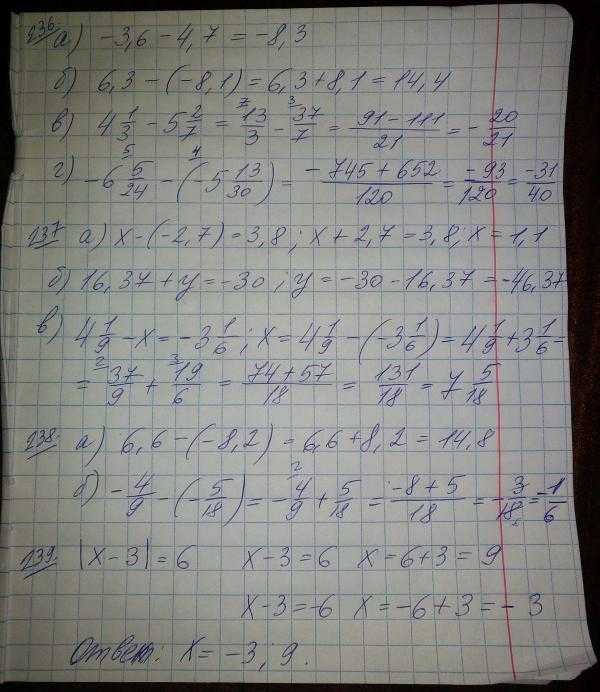 236. а) -3,6 - 4,7 = -8,3
б) 6,3 - (-8,1) = 6,3 + 8,1 = 14,4
в) 4 1/3 - 5 2/7 = ⁷13/3 - ³37/7 = (91 - 111)/21 = - 20/21
г) -6 ⁵5/24 - (-5 ⁴13/30) = (-745 + 652)/120 = -93/120 = -31/40
237. а) x - (-2,7) = 3,8; x + 2,7 = 3,8; x = 1,1
б) 16,37 + y = -30; y = -30 - 16,37 = -46,37
в) 4 1/9 - x = -3 1/6; x = 4 1/9 - (-3 1/6) = 4 1/9 + 3 1/6 =
= ²37/9 + ³19/6 = (74 + 57)/18 = 131/18 = 7 5/18
238. а) 6,6 - (-8,2) = 6,6 + 8,2 = 14,8
б) - 4/9 - (- 5/18) = - ²4/9 + 5/18 = (-8 + 5)/18 = - 3/18 = -1/6
239. |x - 3| = 6 x - 3 = 6 x = 6 + 3 = 9
x - 3 = -6 x = -6 + 3 = -3
Ответ: x = -3; 9.